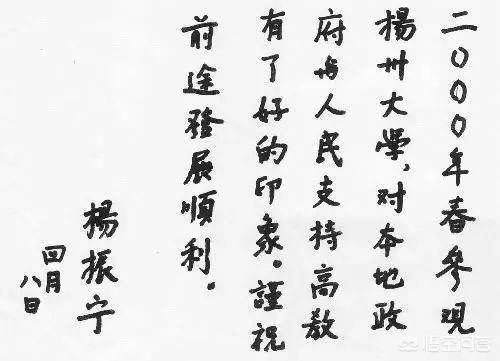 二〇〇〇年春參观
楊卅大學,对本地政
府与人民支持高教
有了好的印象。謹祝
前途發展順利。
楊振宁
四月
八日
悟空问答